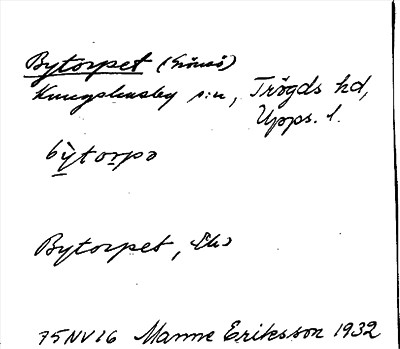 Bytorpet (Grönsö)
Kungshusby s:n, Trögds hd,
Upps. l.
bỳtorpə
Bytorpet,
75NV26 Manne Eriksson 1932